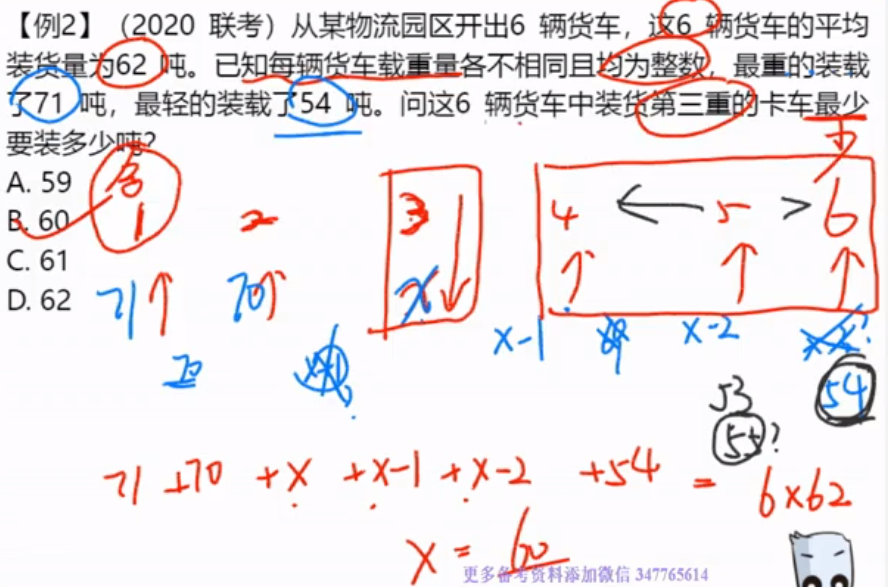 【例2】（2020 联考）从某物流园区开出6 辆货车，这6 辆货车的平均
装货量为62 吨。已知每辆货车载重量各不相同且均为整数，最重的装载
了71 吨，最轻的装载了54 吨。问这6 辆货车中装货第三重的卡车最少
要装多少吨？
A. 59
B. 60
C. 61
D. 62
1 2 3 4 5 > 6
71 70 x x-1 x-2
54
53
55?
71 +70 +x +x-1 +x-2 +54 = 6×62
x = 60
更多备考资料添加微信 347765614